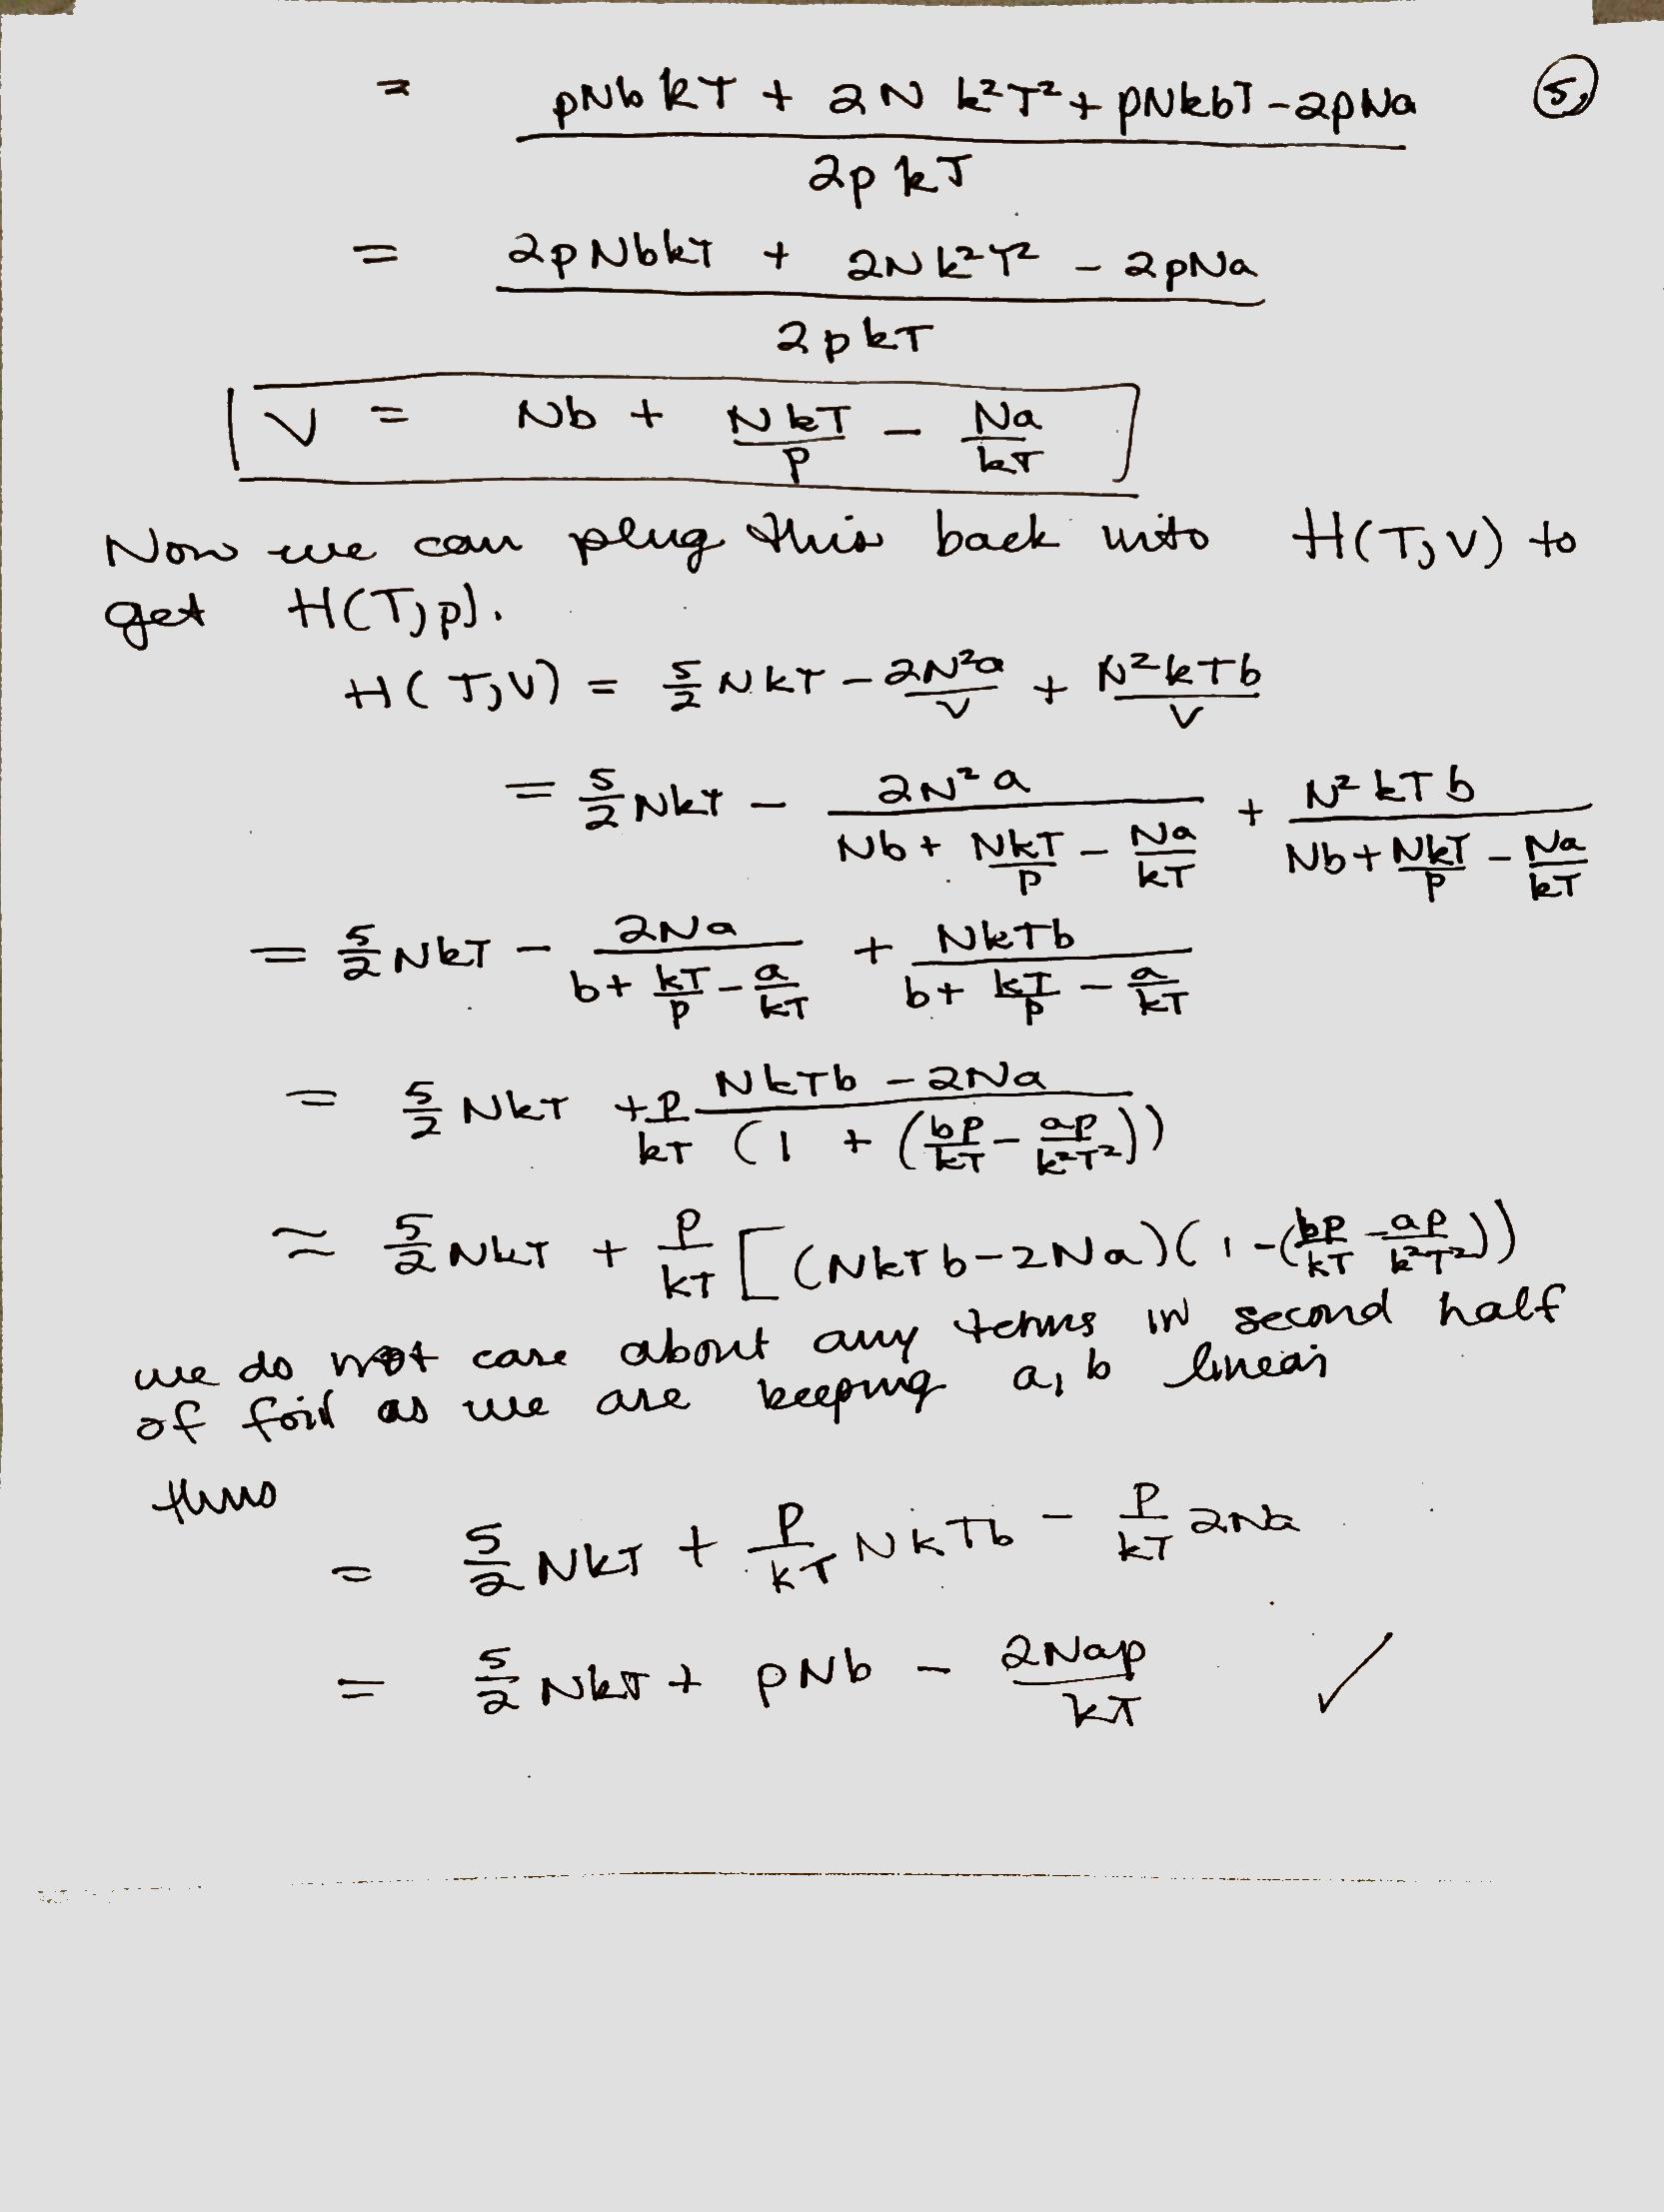 = (pNbkT + 2Nk²T² + pNkbT - 2pNa) / (2pkT)
5.
= (2pNbkT + 2Nk²T² - 2pNa) / (2pkT)
V = Nb + NkT/p - Na/kT
Now we can plug this back into H(T,V) to
get H(T,p).
H(T,V) = 5/2 NkT - 2N²a/V + N²kTb/V
= 5/2 NkT - 2N²a / (Nb + NkT/p - Na/kT) + N²kTb / (Nb + NkT/p - Na/kT)
= 5/2 NkT - 2Na / (b + kT/p - a/kT) + NkTb / (b + kT/p - a/kT)
= 5/2 NkT + p/kT (NkTb - 2Na) / (1 + (bp/kT - ap/k²T²))
≈ 5/2 NkT + p/kT [(NkTb - 2Na)(1 - (bp/kT - ap/k²T²))
we do not care about any terms in second half
of foil as we are keeping a, b linear
thus
= 5/2 NkT + p/kT NkTb - p/kT 2Na
= 5/2 NkT + pNb - 2Nap/kT ✓